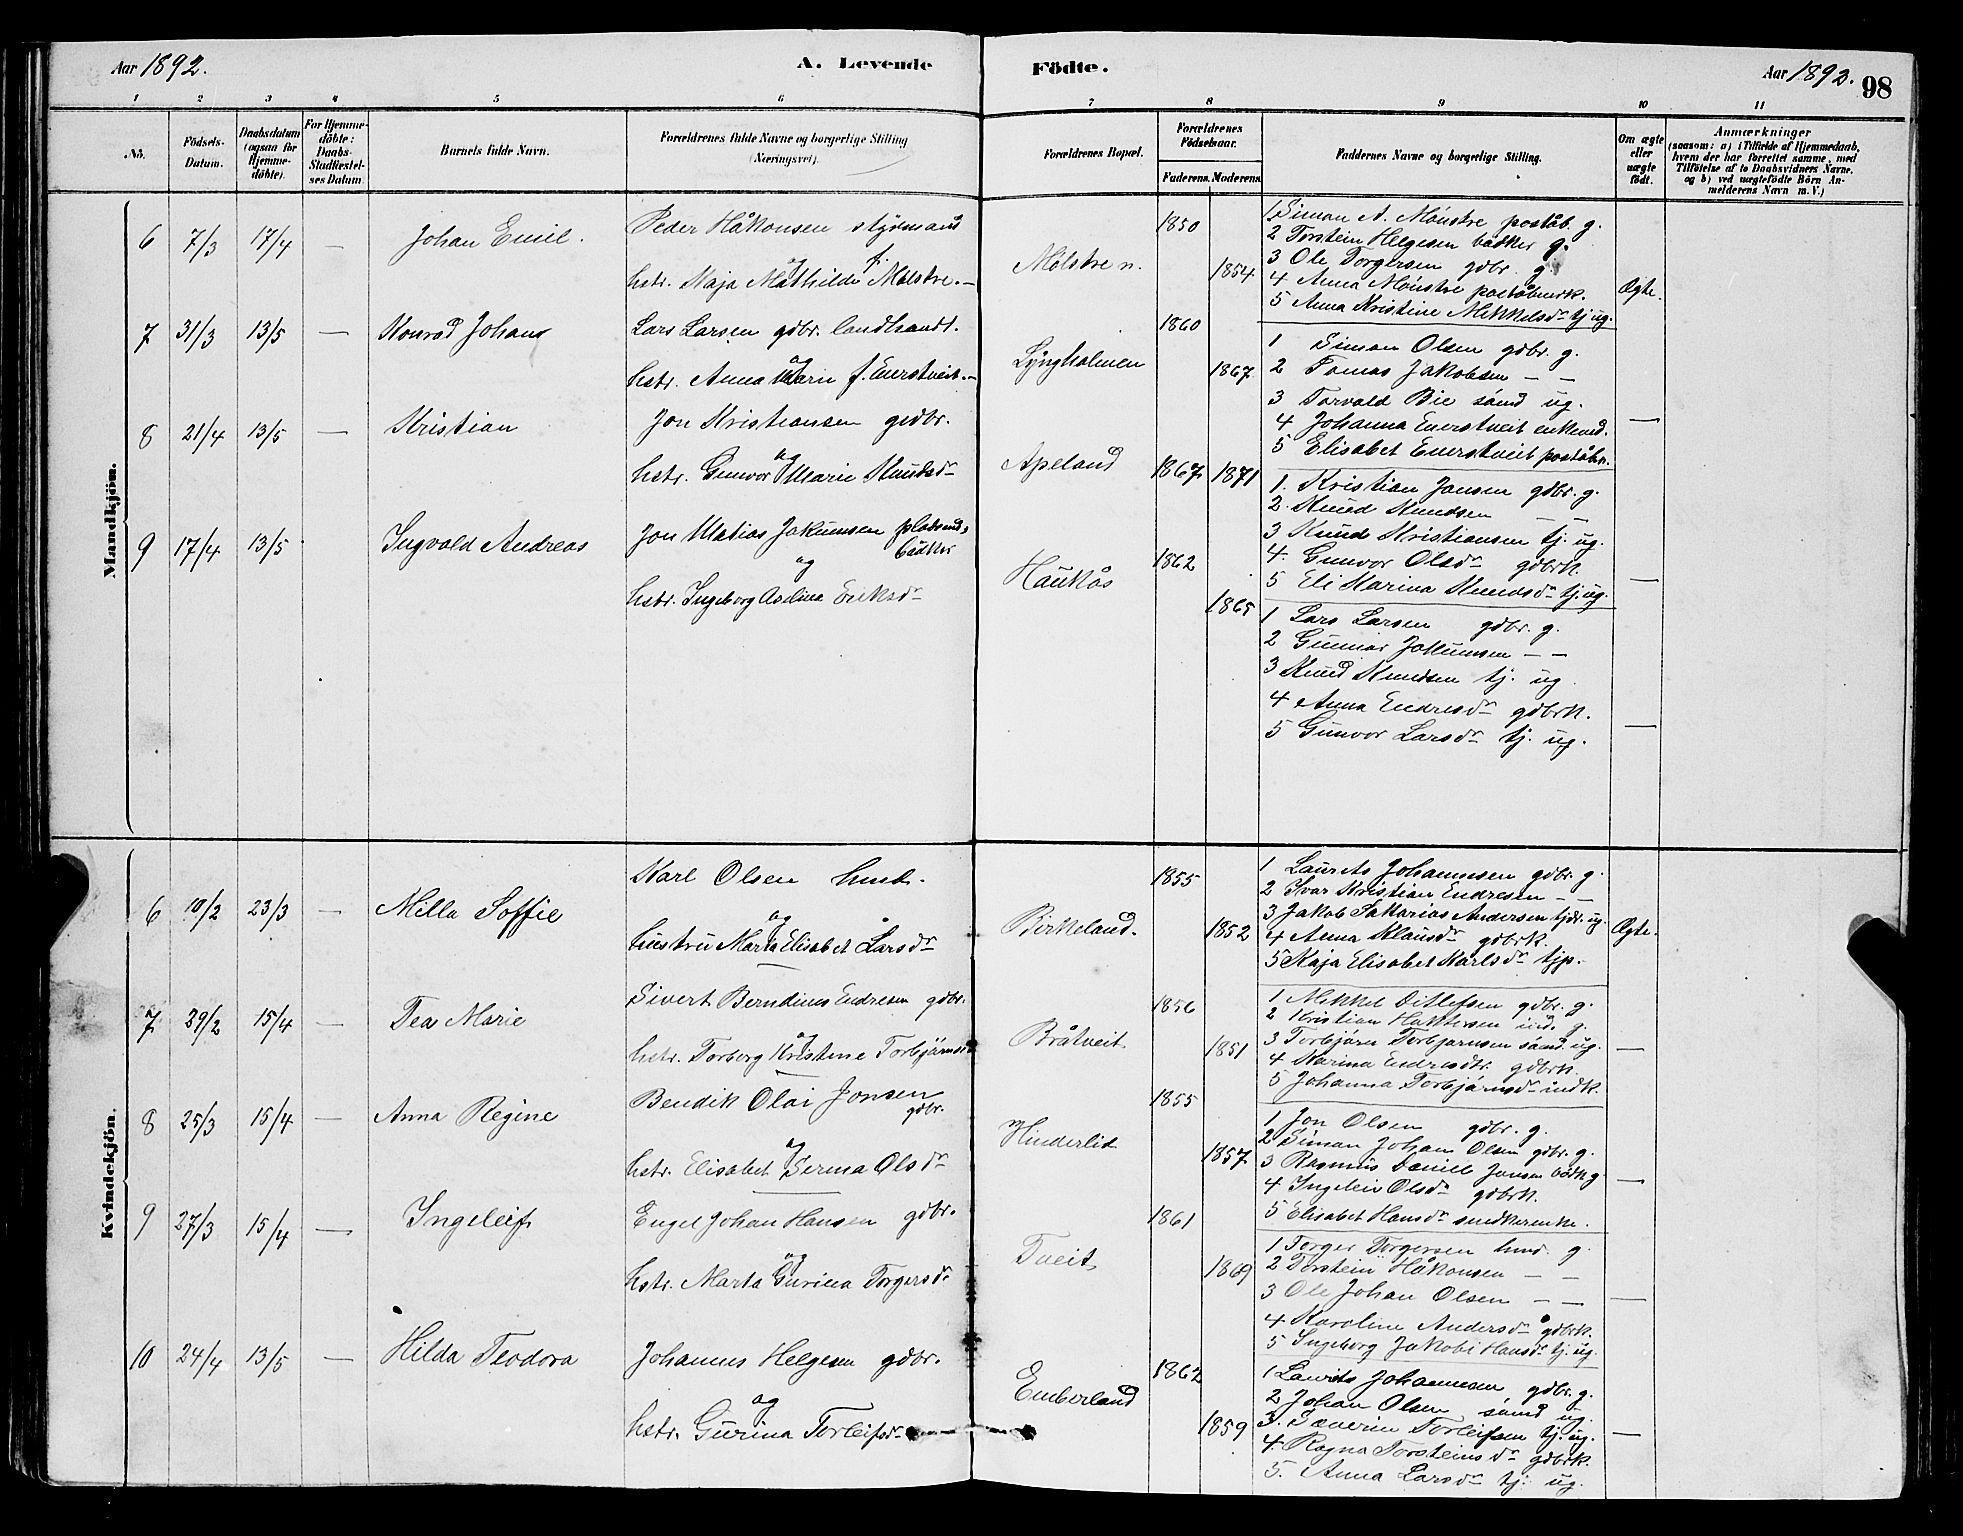 Aar 1892.
A. Levende
Födte.
Aar 1892.
98
1 2 3 4 5 6 7 8 9 10 11
No.
Födsels-Datum.
Daabsdatum (ogsaa for Hjemme-döbte).
For Hjemme-döbte: Daabs-Stadfæstelses Datum
Barnets fulde Navn.
Forældrenes fulde Navne og borgerlige Stilling (Næringsvei).
Forældrenes Bopæl.
Forældrenes Födselsaar.
Faderens. Moderens.
Faddernes Navne og borgerlige Stilling.
Om ægte eller uægte födt.
Anmærkninger
(saasom: a) i Tilfælde af Hjemmedaab, hvem der har forrettet samme, med Tilföielse af to Daabsvidners Navne, og b) ved uægtefödte Börn Anmelderens Navn m. V.)
Mandkjön.
6 7/3 17/4 — Johan Emil.
Peder Håkonsen styrmand
og
hstr. Maja Mathilde f. Mølstre. —
Mølstre n.
1850
1854
1 Simon A. Mönstre poståb. g.
2 Torstein Helgesen bødker g.
3 Ole Torgersen gdbr. g.
4 Anna Mönstre poståbnrk.
5 Anna Kristine Mikkelsdr tj. ug.
Ægte.
7 31/3 13/5 — Konrad Johans
Lars Larsen gdbr. landhandl.
og
hstr. Anna Marie f. Enerstveit. —
Lyngholmen
1860
1867
1 Simon Olsen gdbr. g.
2 Tomas Jakobsen — —
3 Torvald Bie sømd ug.
4 Johanna Enerstveit enkemd.
5 Elisabet Enerstveit poståbn.
—
8 21/4 13/5 — Kristian
Jon Kristiansen gdbr.
og
hstr. Gunvor Marie Knudsdr
Apeland
1867 1871
1. Kristian Jonsen gdbr. g.
2. Knud Knudsen — —
3 Knud Kristiansen tj. ug.
4. Gunvor Olsdr gdbrk.
5 Eli Karina Knudsdr tj. ug.
—
9 17/4 13/5 Ingvald Andreas
Jon Matias Jakumsen pladsmd, bødker
og
hstr. Ingeborg Aselina Eriksdr
Haukås
1862
1865
1 Lars Larsen gdbr. g.
2 Gunnar Jakumsen — —
3 Knud Knudsen tj. ug
4 Anna Endresdr gdbrk.
5 Gunvor Larsdr tj. ug.
—
Kvindekjön.
6 10/2 23/3 — Milla Soffie
Karl Olsen hmd.
og
hustru Marta Elisabet Larsdr
Birkeland.
1855
1852
1 Laurits Johannesen gdbr. g.
2 Ivar Kristian Endresen — —
3 Jakob Sakarias Andersen tjdr. ug.
4 Anna Klausdr gdbrk.
5 Kaja Elisabet Karlsdr tjp.
Ægte.
7 29/2 15/4 — Tea Marie
Sivert Berndinus Endresen gdbr.
og
hstr. Torborg Kristene Torbjörnsd
Bråtveit
1856
1851
1 Mikkel Ditlefsen gdbr. g.
2 Kristian Haktorsen ind. g.
3 Torbjörn Torbjörnsen sömd. ug.
4 Karina Endresdtr. gdbrk.
5 Johanna Torbjörnsdr indk.
—
8 25/3 15/4 — Anna Regine
Bendik Olai Jonsen
gdbr.
og
hstr. Elisabet Serina Olsdr
Hinderlid
1855
1857
1 Jon Olsen gdbr. g.
2 Simon Johan Olsen gdbr. g.
3 Rasmus Daniel Jonsen bödk g
4 Ingeleiv Olsdr gdbrk.
5 Elisabet Hansdr snedkerenke.
—
9 27/3 15/4 — Ingeleif
Engel Johan Hansen gdbr.
og
hstr. Marta Gurina Torgersdr
Tveit
1861
1869
1 Torger Torgersen hmd. g.
2 Torstein Håkonsen — —
3 Ole Johan Olsen — —
4 Karoline Andersdr gdbrk.
5 Ingeborg Jakobi Hansdr tj. ug.
—
10 24/4 13/5 — Hilda Teodora
Johannes Helgesen gdbr.
og
hstr. Gurina Torleifsdr
Emberland
1862
1859
1 Laurits Johannesen gdbr. g.
2 Johan Olsen sömd ug.
3. Severin Torleifsen tj. ug.
4. Ragna Torsteinsdr gdbrk.
5. Anna Larsdr tj. ug.
—